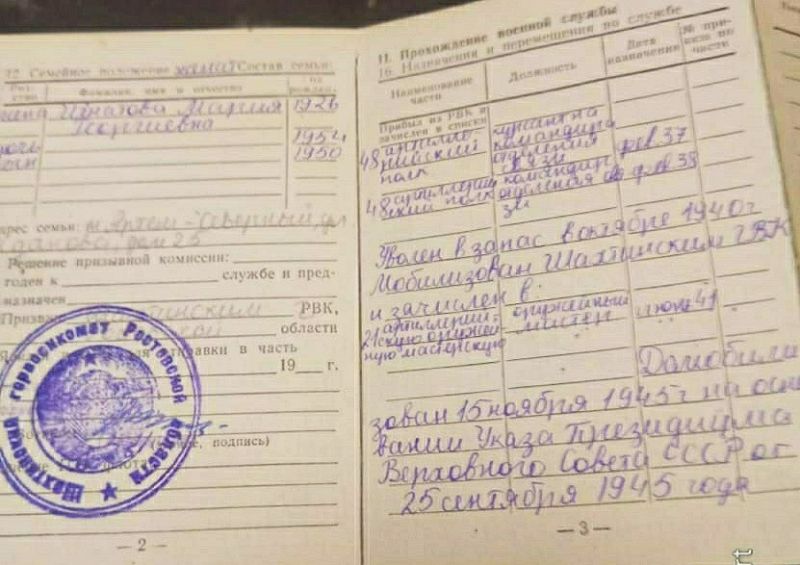 12. Семейное положение женат Состав семьи:
Фамилия, имя и отчество
Игнатова Мария 1926
Георгиевна
1954
1950
адрес семьи: п. Артем-Северный, ул
дом 25
Решение призывной комиссии:
годен к службе и пред-
назначен
Призван РВК,
области
отправки в часть
19 г.
подпись)
Шахтинский горвоенкомат Ростовской области
— 2 —
II. Прохождение военной службы
16. Назначения и перемещения по службе
Наименование части
Должность
Дата назначения
№ приказа по части
Прибыл из РВК и
зачислен в списки
48 артилле-
рийский
полк
курсант на
командира
отделения
связи
фев 37
48 артиллерий
ский полк
командир
отделения
фев 38
Уволен в запас в октябре 1940г
Мобилизован Шахтинским ГВК
и зачислен в:
21 артиллерий-
скую оружей-
ную мастерскую
оружейный
мастер
июнь 41
Домобили
зован 15 ноября 1945г на осно
вании Указа Президиума
Верховного Совета СССР от
25 сентября 1945 года
— 3 —